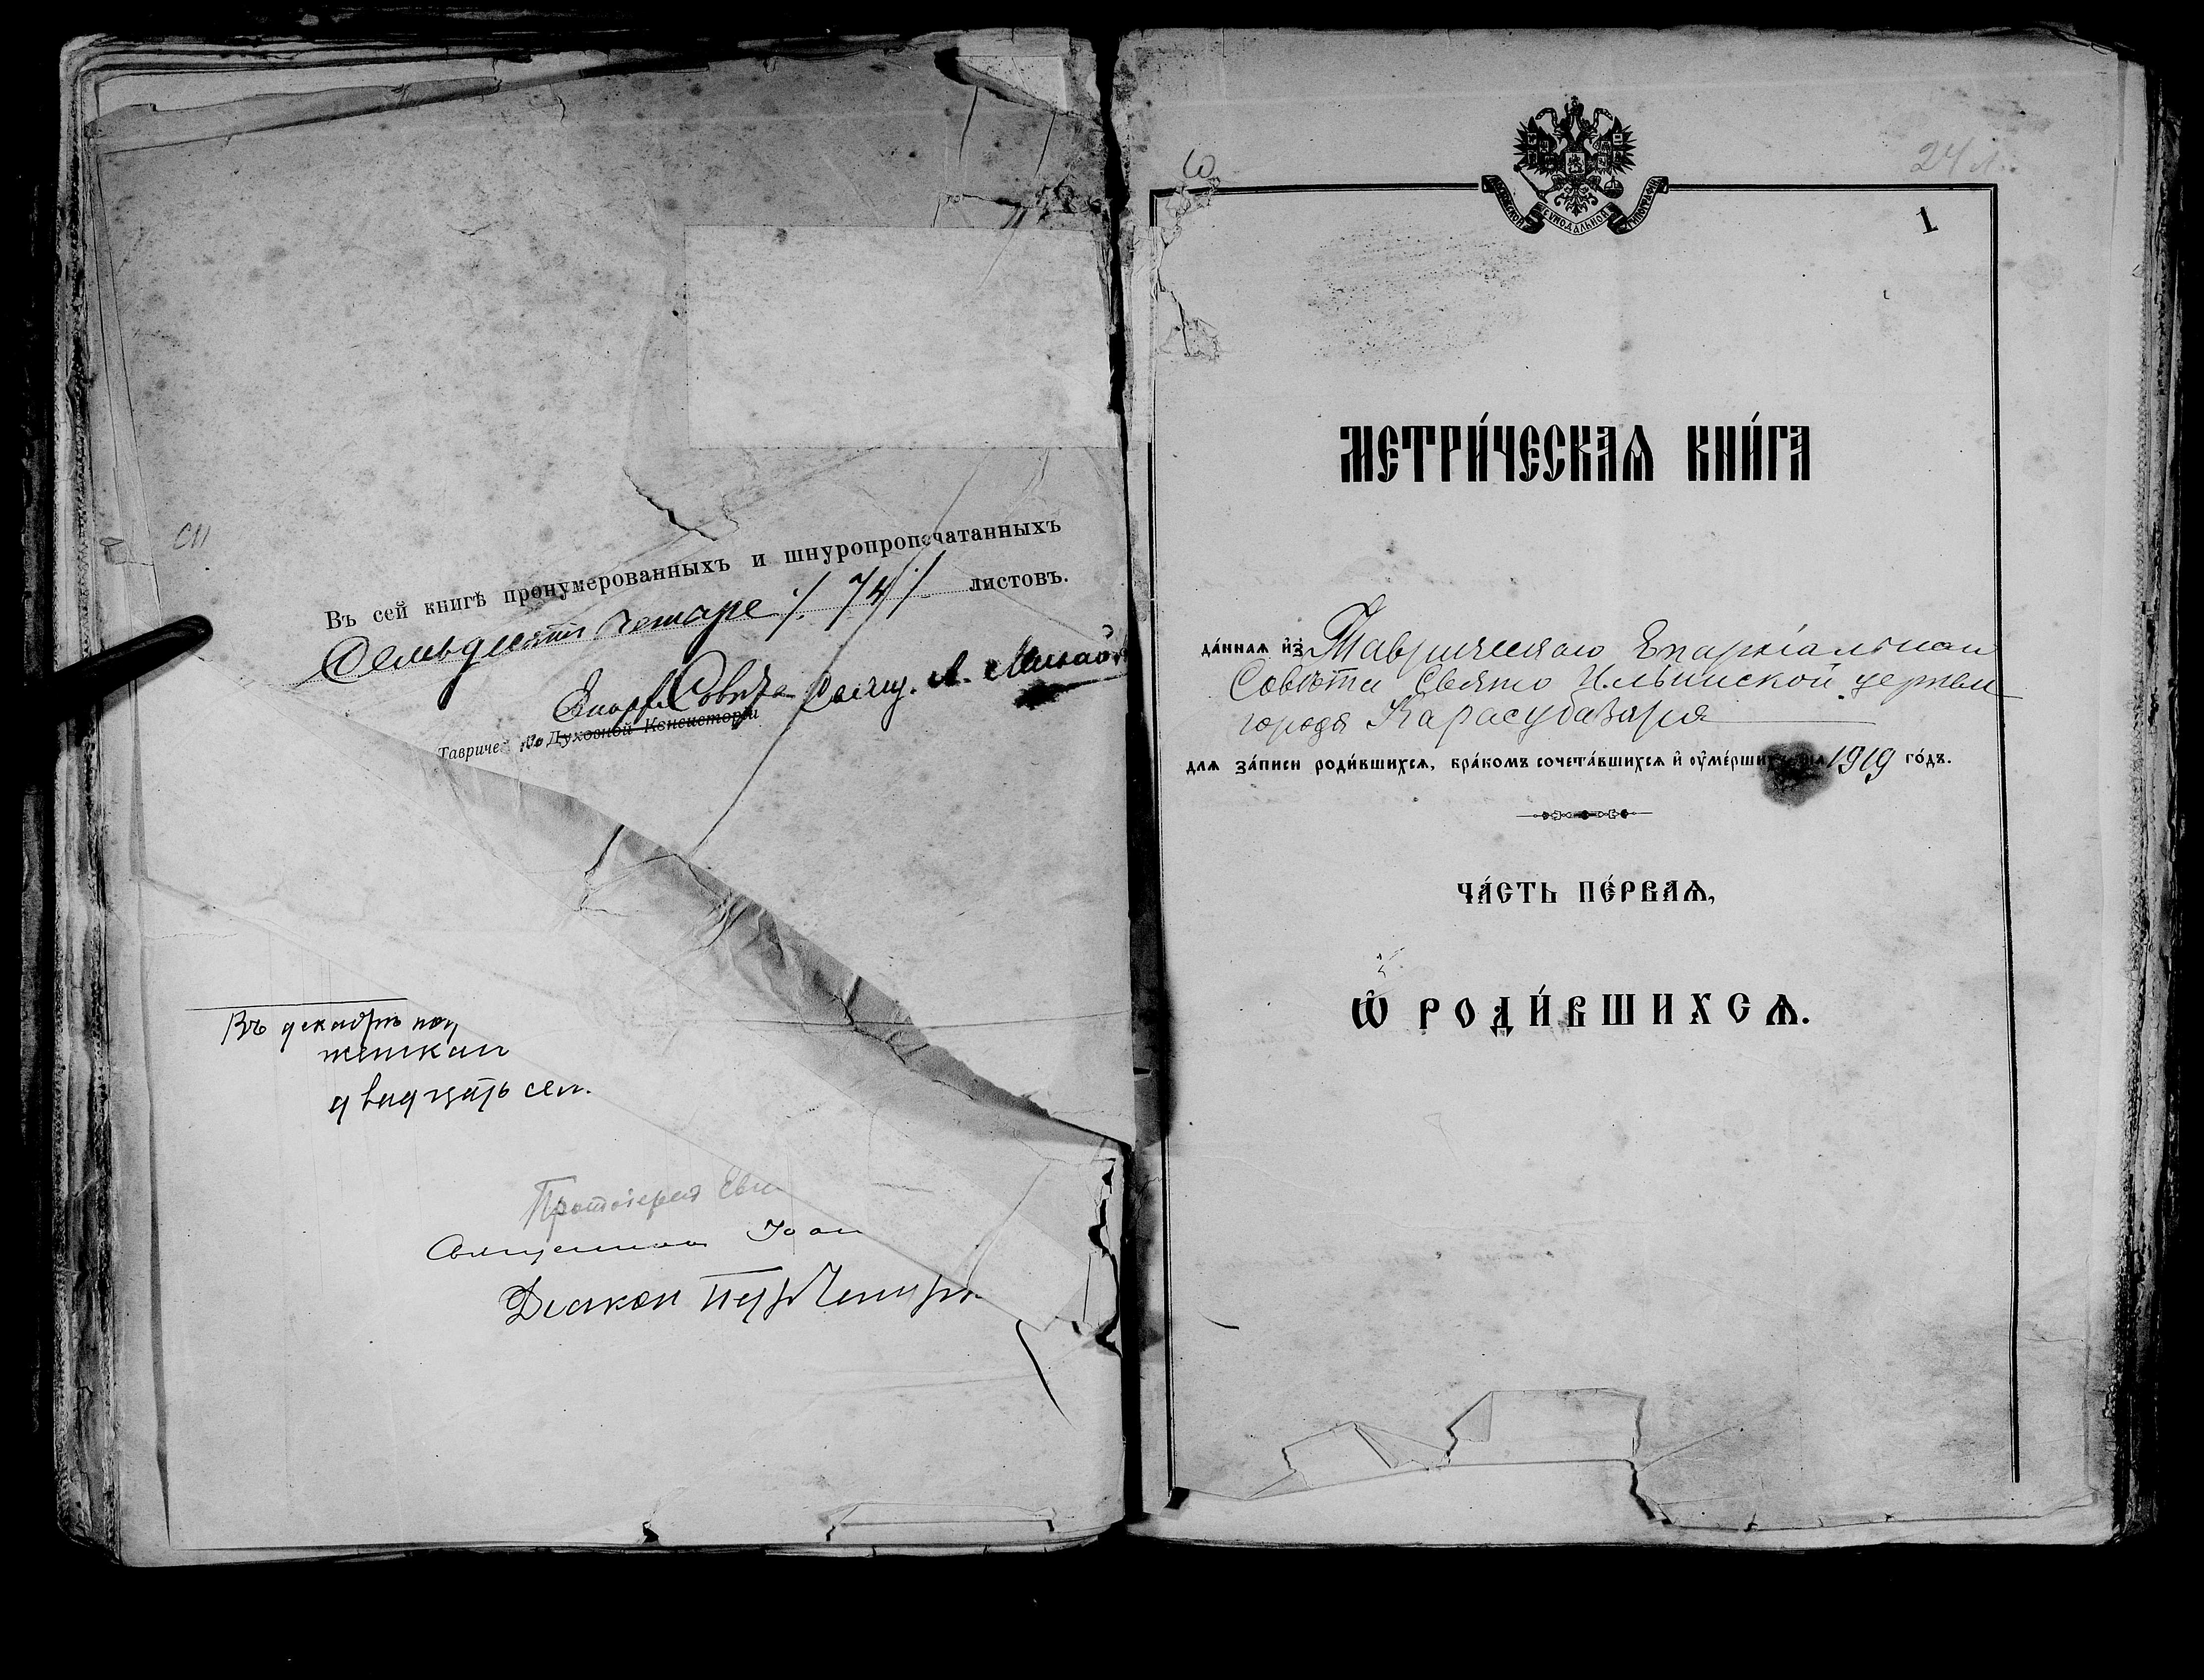 Въ сей книгѣ пронумерованныхъ и шнуропропечатанныхъ
Семьдесятъ четыре /. 74 ./ листовъ.
Епарх. Совѣта Свящ. А.
Тавриче Духовной Консисторіи
Въ декабрѣ
женскаго
двадцать сем.
Протоіерей Евг
Священник Іоан
Діакон Петр
24 л.
1
МОСКОВСКОЙ СѴНОДАЛЬНОЙ ТИПОГРАФІИ
МЕТРИ́ЧЕСКАѦ КНИ́ГА
да́ннаѧ и҆з̾ Таврическаго Епархіальнаго
Совѣта Свято Ильинской церкви
города Карасубазара
длѧ за́писи роди́вшихсѧ, бра́комъ сочета́вшихсѧ и҆ ᲂу҆ме́рших 1919 го́дъ.
ЧА́СТЬ ПЕ́РВАѦ,
Ѽ РОДИ́ВШИХСѦ.